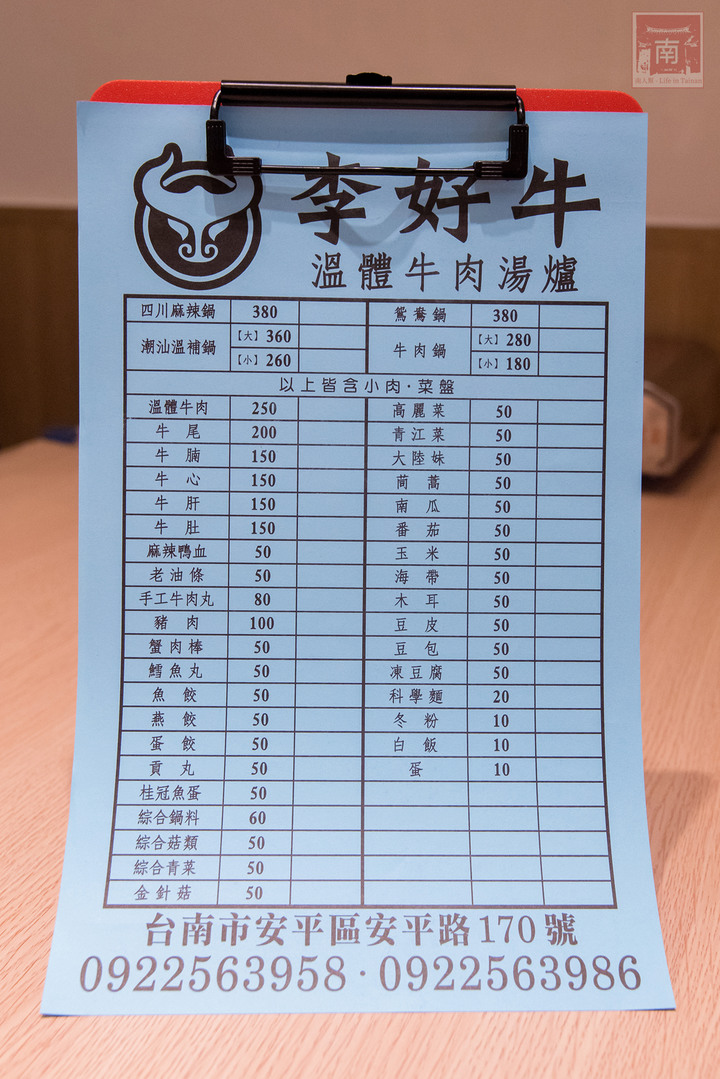 南
南人幫 - Life in Tainan
李好牛
溫體牛肉湯爐
四川麻辣鍋 380 鴛鴦鍋 380
潮汕溫補鍋 【大】360 牛肉鍋 【大】280
【小】260 【小】180
以上皆含小肉·菜盤
溫體牛肉 250 高麗菜 50
牛尾 200 青江菜 50
牛腩 150 大陸妹 50
牛心 150 茼蒿 50
牛肝 150 南瓜 50
牛肚 150 番茄 50
麻辣鴨血 50 玉米 50
老油條 50 海帶 50
手工牛肉丸 80 木耳 50
豬肉 100 豆皮 50
蟹肉棒 50 豆包 50
鱈魚丸 50 凍豆腐 50
魚餃 50 科學麵 20
燕餃 50 冬粉 10
蛋餃 50 白飯 10
貢丸 50 蛋 10
桂冠魚蛋 50
綜合鍋料 60
綜合菇類 50
綜合青菜 50
金針菇 50
台南市安平區安平路170號
0922563958·0922563986